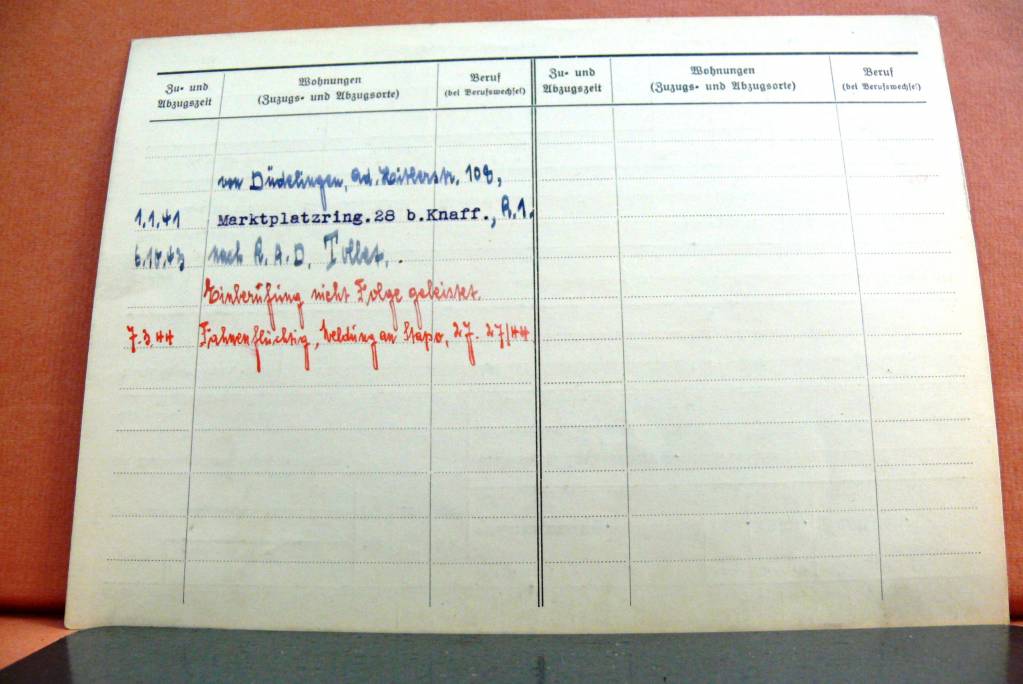 Zu- und Abzugszeit
Wohnungen
(Zuzugs- und Abzugsorte)
Beruf
(bei Berufswechsel)
Zu- und Abzugszeit
Wohnungen
(Zuzugs- und Abzugsorte)
Beruf
(bei Berufswechsel)
von Düdelingen, Ad. Hitlerstr. 108,
1.1.41 Marktplatzring.28 b.Knaff., R.1.
6.10.43 nach R.A.D. .
Einberufung nicht Folge geleistet.
7.3.44 Fahnenflüchtig, Meldung an Stapo, 27. 27/44